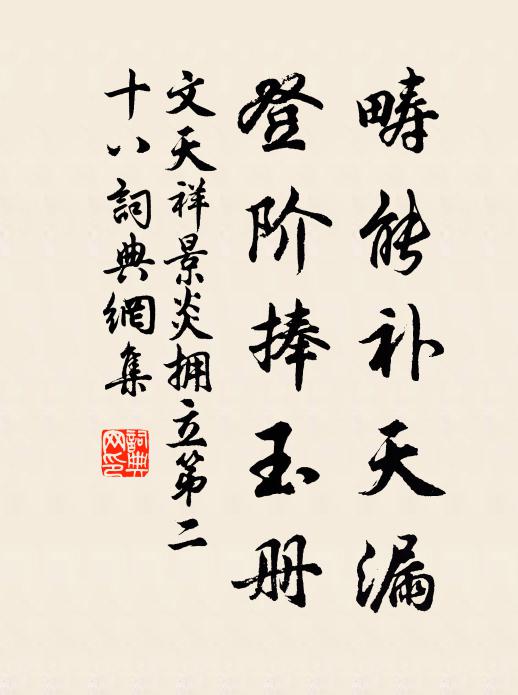 畴能补天漏
登阶捧玉册
文天祥景炎拥立第二
十八詞典網集
詞典网印